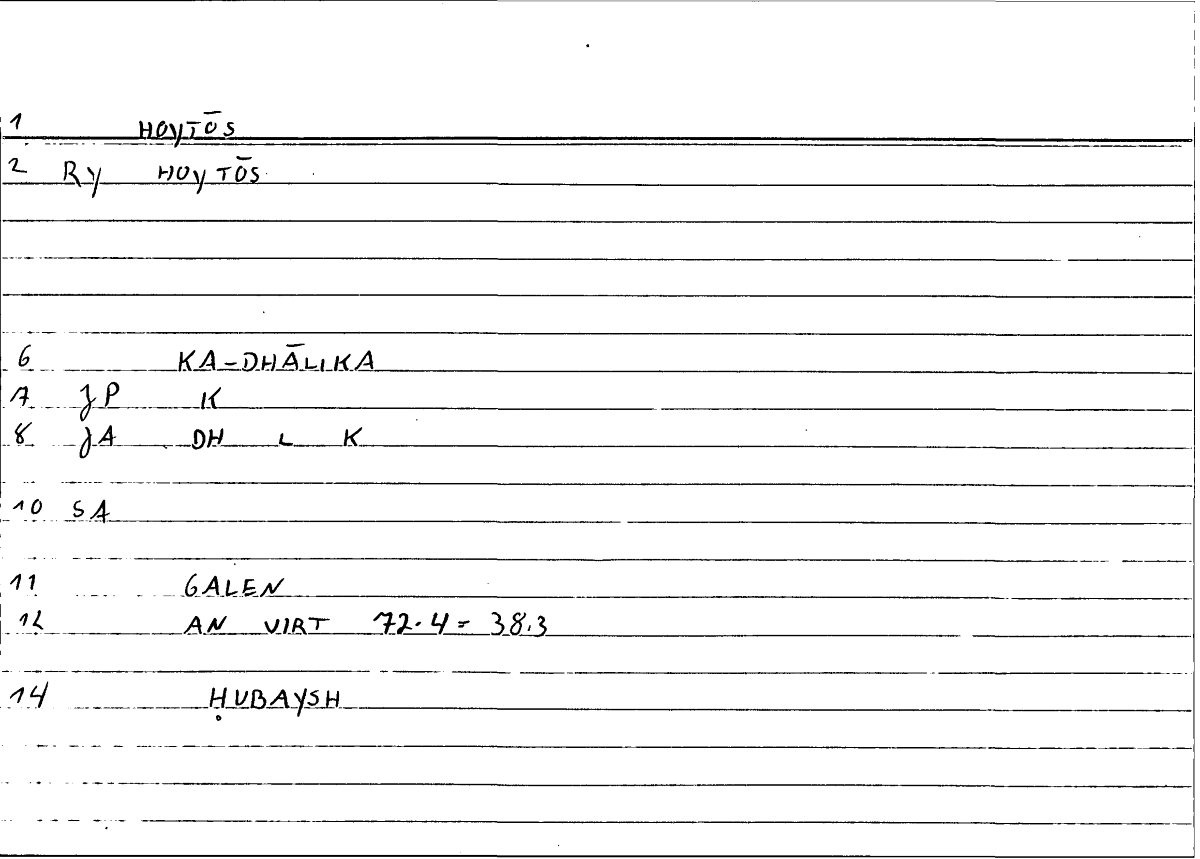 1 HOYTŌS
2 Ry HOYTŌS
6 KA-DHĀLIKA
7 JP K
8 JA DH L K
10 SA
11 GALEN
12 AN VIRT 72.4 = 38.3
14 ḤUBAYSH